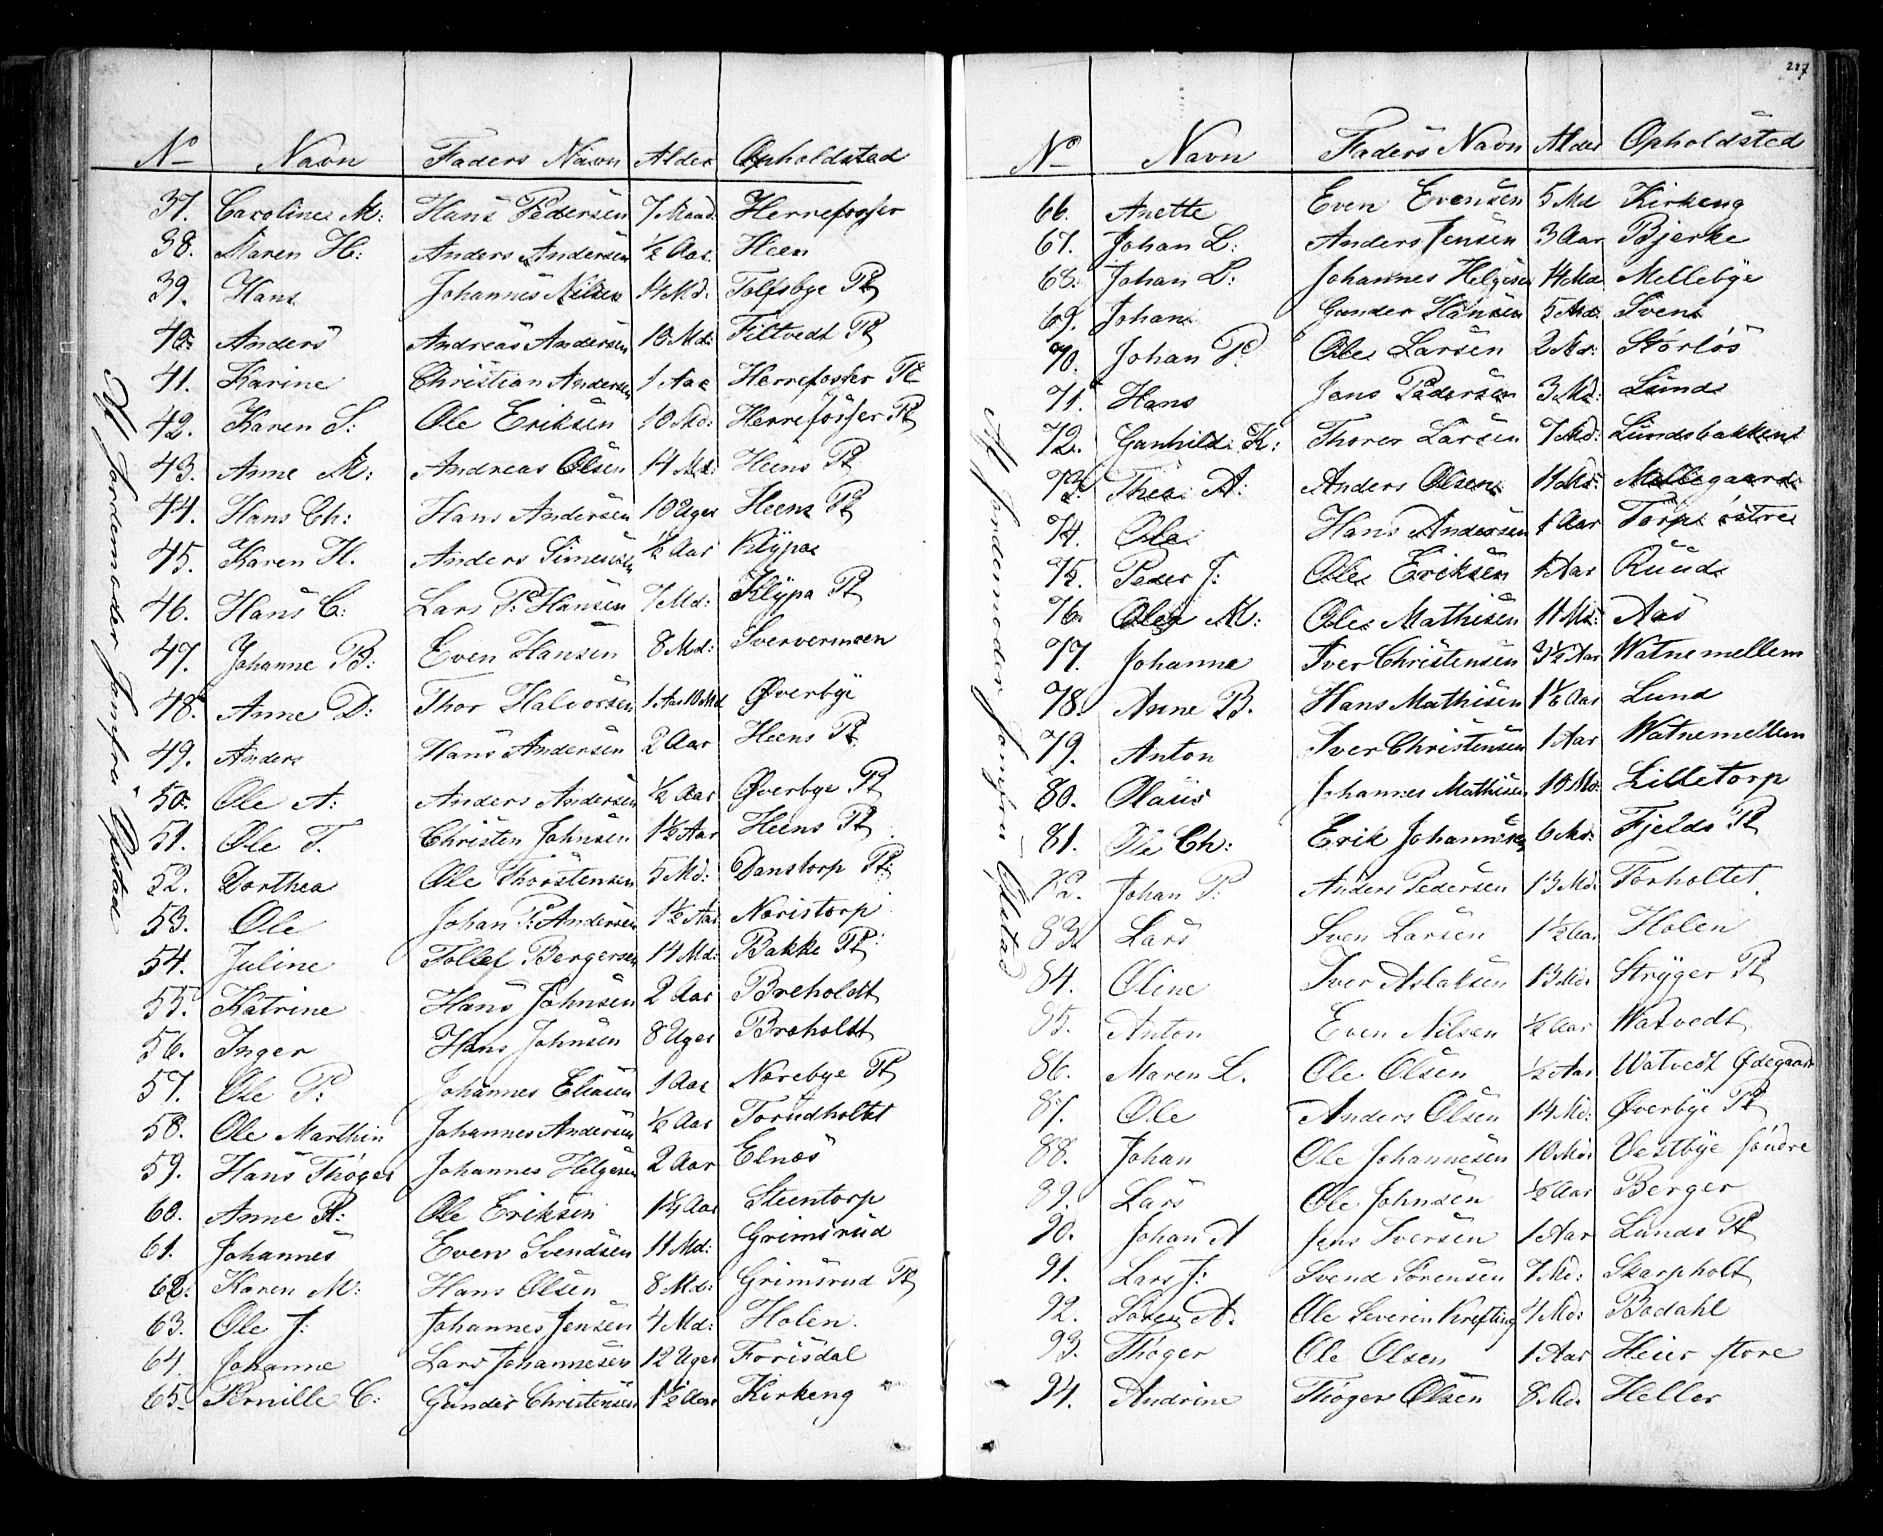 No Navn Faders Navn Alder Opholdsted
37. Caroline M: Hans Pedersen 7 Maad. Herrefosser
38. Maren H: Anders Andersen ½ Aar. Heen
39. Hans Johannes Nilsen 14 Md: Tolfsbye Pl
40. Anders Andreas Andersen 10 Md: Filtvedt Pl
41. Karine Christian Andersen 1 Aar Herrefosser Pl
42. Karen S: Ole Eriksen 10 Md: Herrefosser Pl
43. Anne M: Andreas Olsen 14 Md: Heens Pl
44. Hans Ch: Hans Andersen 10 Uger Heens Pl
45. Karen H. Anders Simensen ½ Aar Klÿpa
46. Hans C: Lars P. Hansen 7 Md: Klÿpa Pl
47. Johanne B: Even Hansen 8 Md:
48. Anne D: Thor Halvorsen 1 Aar 10 Md Øverbÿe
49. Anders Hans Andersen 2 Aar Heens Pl
50. Ole A: Anders Andersen ½ Aar Øverbye Pl
51. Ole T. Christen Johnsen 1½ Aar Heens Pl
52. Dorthea Ole Thorstensen 5 Md: Danstorp Pl:
53. Ole Johan P. Andersen 1½ Aar Noristorp
54. Juline Tollef Bergersen 14 Md: Bakke Pl
55. Katrine Hans Johnsen 2 Aar Breholdt
56. Inger Hans Johnsen 8 Uger Broholdt
57. Ole P: Johannes Eliasen 1 Aar Norebye Pl
58. Ole Marthin Johannes Andersen ½ Aar Torudholtet
59. Hans Thøger Johannes Helgesen 2 Aar Elnæs
60. Anne R: Ole Eriksen 1¼ Aar Steentorp
61. Johannes Even Svendsen 11 Md: Grimsrud
62. Karen M: Hans Olsen 8 Md: Grimsrud Pl
63. Ole J: Johannes Jensen 4 Md: Holen.
64. Johanne Lars Johannesen 12 Uger Forisdal
65. Pernille C: Gunder Christensen 1½ Aar Kirkeng
Af Jordemoder Jomfru Ølstad
227
No Navn Faders Navn Alder Opholdsted
66. Anette Even Evensen 5 Md Kirkeng
67. Johan L: Anders Jensen 3 Aar Bjerke
68. Johan L: Johannes Helgesen 14 Md Mellebye
69. Johan Gunder Hansen 5 Md. Svens
70. Johan P. Ole Larsen 2 Md: Størløs
71. Hans Jens Pedersen 3 Md: Lund
72. Gunhild K: Thorer Larsen 7 Md: Lundsbakken
73. Thea A: Anders Olsen 11 Md: Mellegaard
74. Ole Hans Andersen 1 Aar Torp østre
75. Peder J: Ole Eriksen 1 Aar Rüüd
76. Ole M: Ole Mathisen 11 Md: Aas
77. Johanna Iver Christensen 3½ Aar Watnemellem
78. Anne B. Hans Mathisen Aar Lund
79. Anton Iver Christensen 1 Aar Watnemellem
80. Olaus Johannes Mathisen 10 Md: Lilletorp
81. Ole Ch: Erik Johannesen 6 Md. Fjelds Pl
82. Johan P. Anders Pedersen 13 Md. Torholtet
83. Lars Sven Larsen 1½ Aar Holen
84. Oline Iver Aslaksen 13 Md. Strÿger Pl
85. Anton Even Nilsen ½ Aar Watvedt
86. Maren L. Ole Olsen ½ Aar Watvedt Ødegaard
87. Ole Anders Olsen 14 Md: Øverbÿe Pl
88. Johan Ole Johannesen 10 Md. Vestbÿe søndre
89. Lars Ole Johnsen ½ Aar Berger
90. Johan A Jens Iversen 1 Aar Lunds Pl
91. Lars J: Svend Sørensen 7 Md: Skarpholt
92. Soren A. Ole Severin Krefting 4 Md: Bodahl
93. Thøger Ole Olsen 1 Aar Heier store
94. Andrine Thøger Olsen 8 Md. Heller
Af Jordemoder Jomfru Ølstad